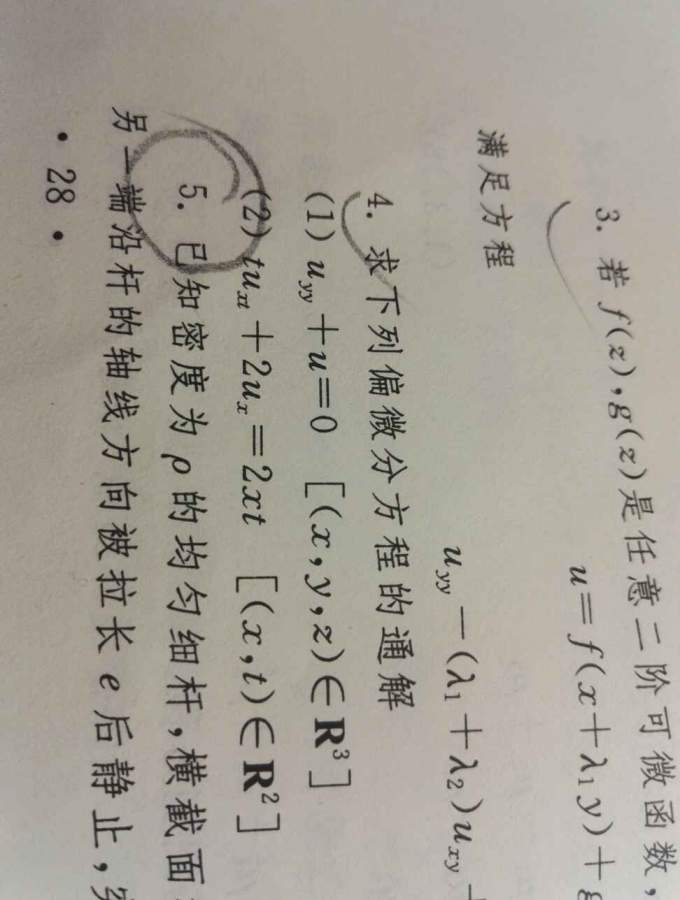 3. 若 f(z), g(z)是任意二阶可微函数,
u=f(x+λ₁y)+g
满足方程
u_yy-(λ₁+λ₂)u_xy+
4. 求下列偏微分方程的通解
(1) u_yy+u=0 [(x,y,z)∈R³]
(2) tu_xt+2u_x=2xt [(x,t)∈R²]
5. 已知密度为 ρ 的均匀细杆,横截面
另一端沿杆的轴线方向被拉长 e 后静止,
• 28 •